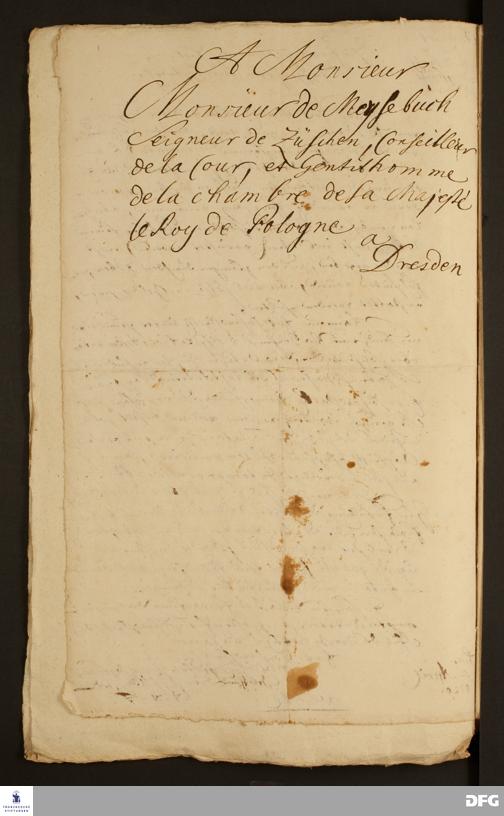 A Monsieur
Monsieur de Meysebüch
Seigneur de Züschen, Conseilleur
de la Cour, et Gentilhomme
de la chambre de sa Majesté
le Roy de Pologne
a
Dresden
FRANCKESCHE
STIFTUNGEN
DFG